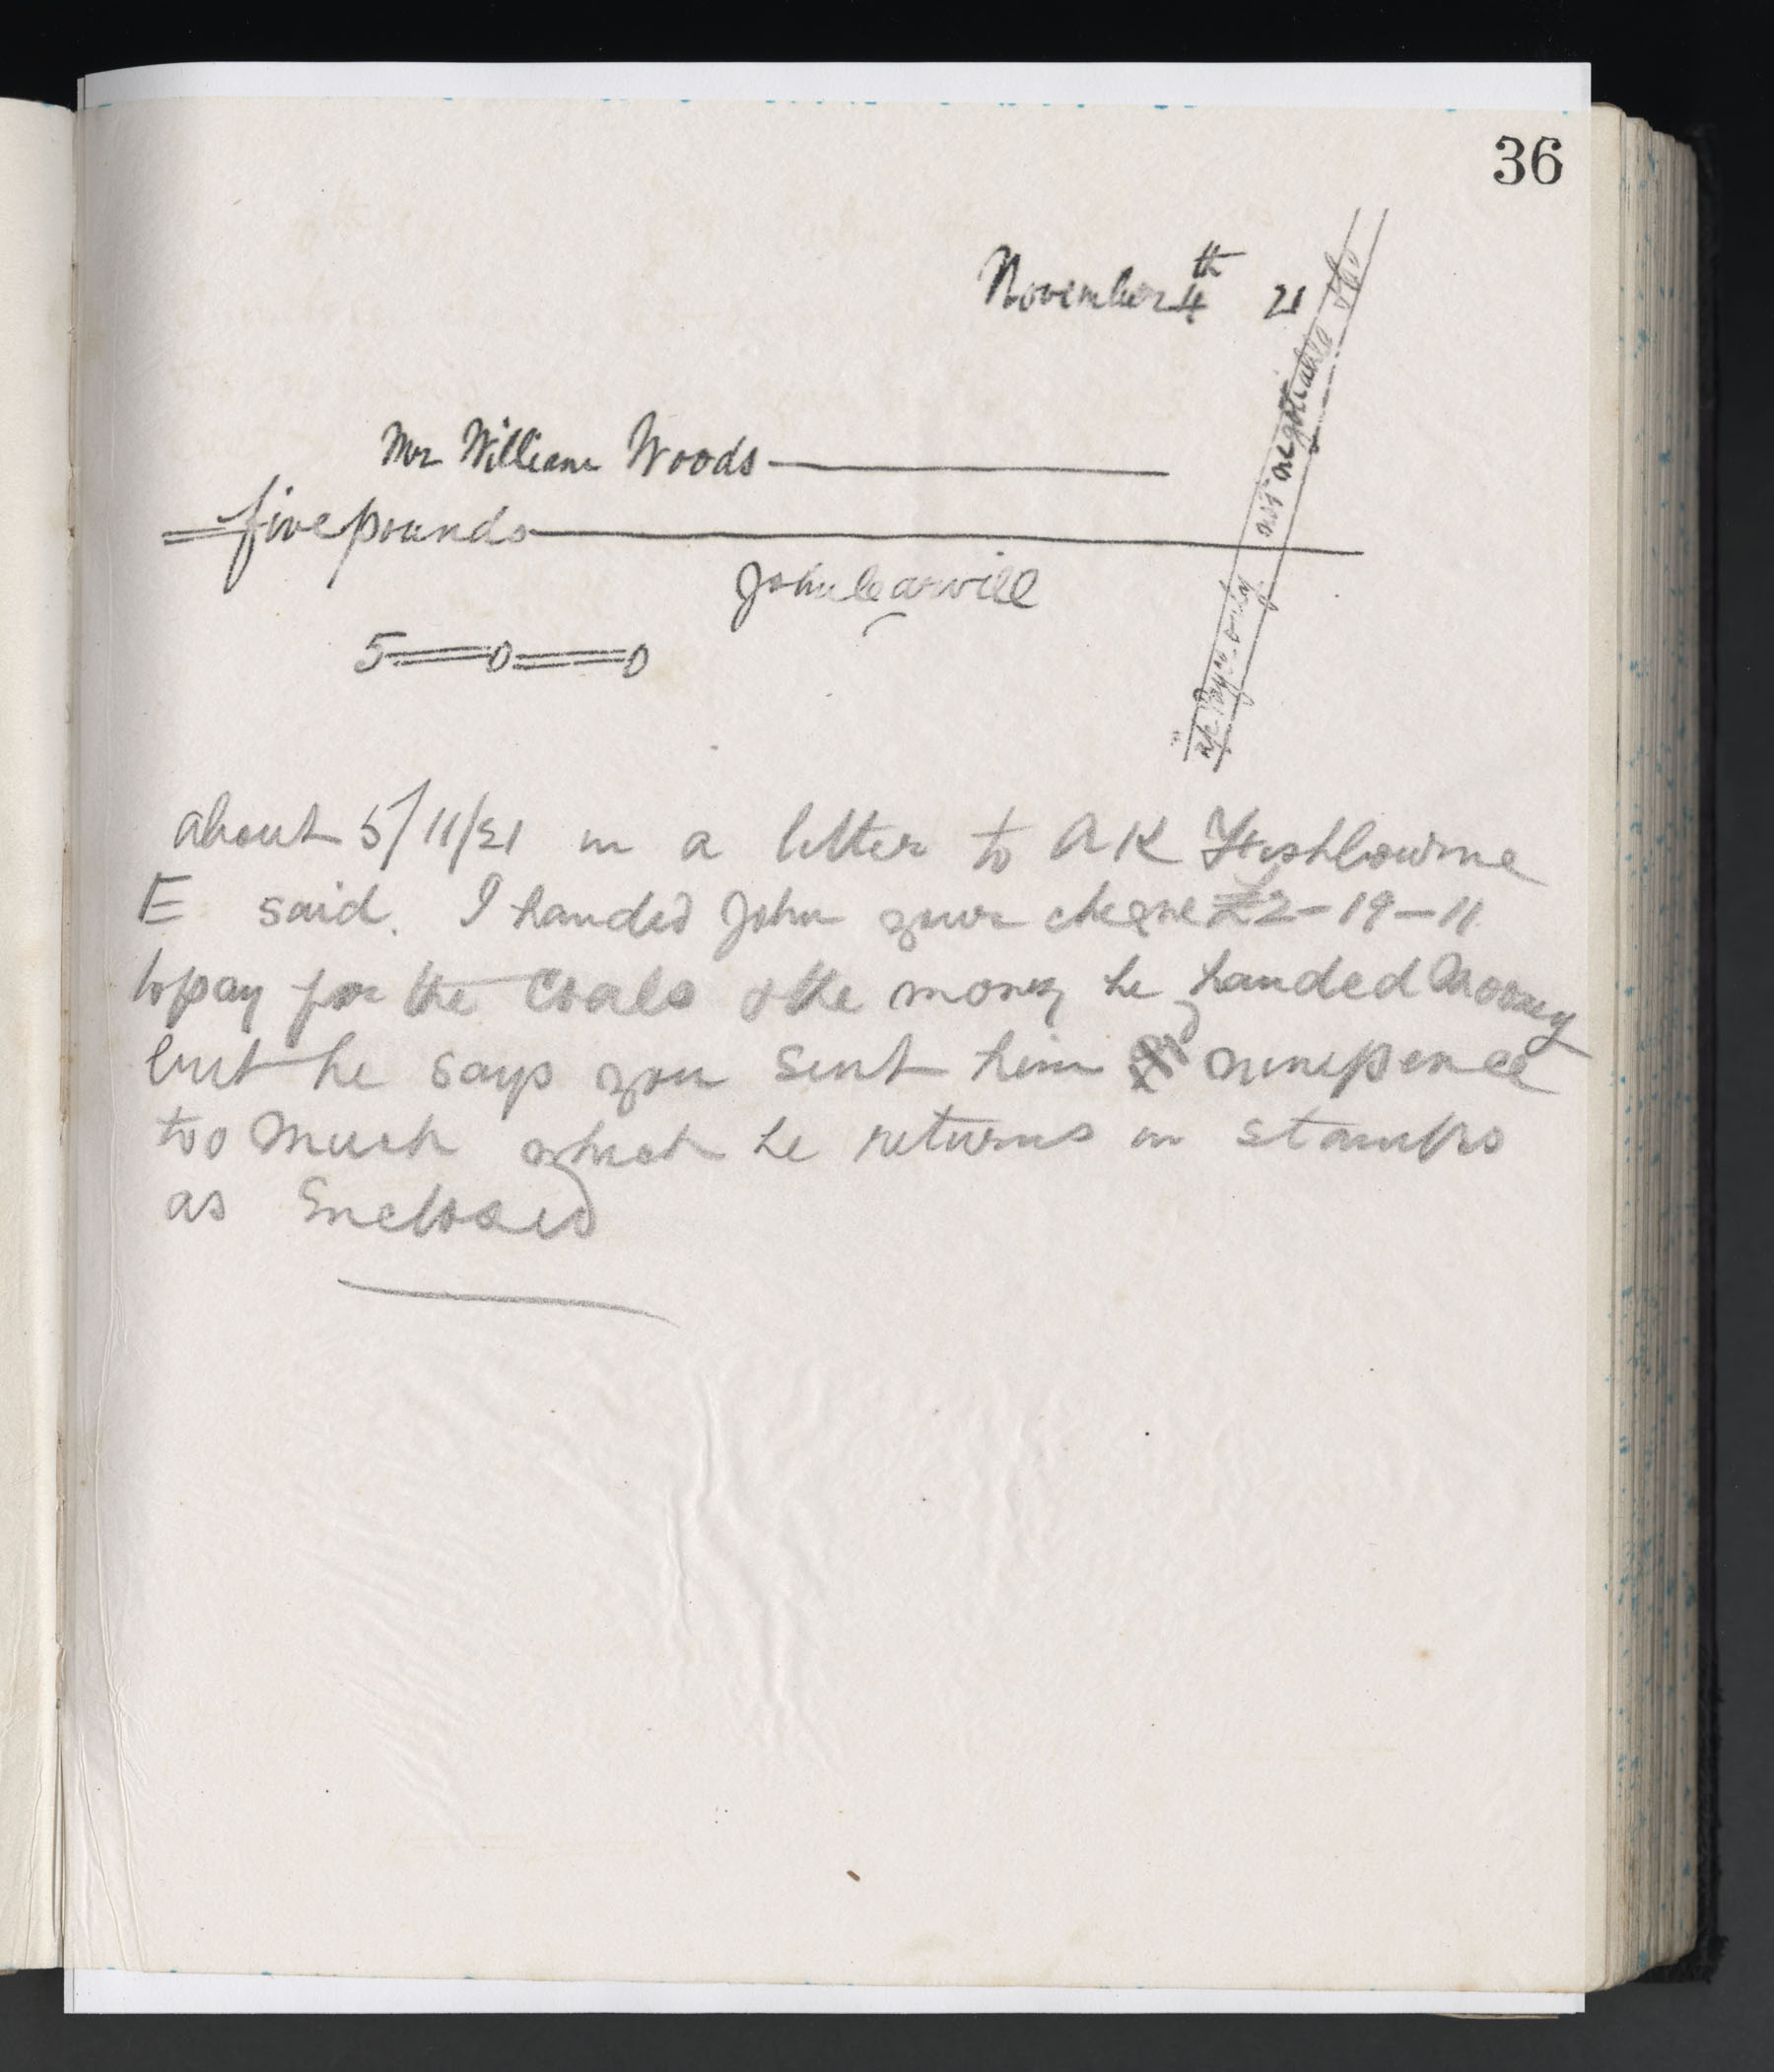 36
November 4th 21
Mr William Woods
five pounds
John Carvill
5 = 0 = 0
a/c Payee only not negotiable & Co
about 5/11/21 in a letter to A K Fishbourne
E said. I handed John your cheque £2-19-11
to pay for the Coals & the money he handed Mooney
but he says you sent him ninepence
too much which he returns in stamps
as Enclosed